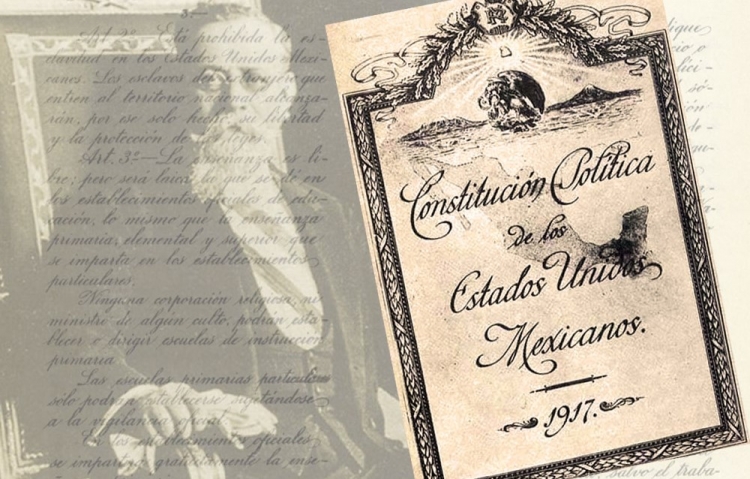 3.—
Art. 2º.—Está prohibida la es-
clavitud en los Estados Unidos Mexi-
canos. Los esclavos del extranjero que
entren al territorio nacional alcanza-
rán, por ese solo hecho, su libertad
y la protección de las leyes.
Art. 3º.—La enseñanza es li-
bre; pero será laica la que se dé en
los establecimientos oficiales de edu-
cación, lo mismo que la enseñanza
primaria, elemental y superior que
se imparta en los establecimientos
particulares.
Ninguna corporación religiosa, ni
ministro de algún culto, podrán esta-
blecer o dirigir escuelas de instrucción
primaria
Las escuelas primarias particulares
solo podrán establecerse sujetándose
a la vigilancia oficial.
En los establecimientos oficiales
se impartirá gratuitamente la ense-
Constitución Política
de los
Estados Unidos
Mexicanos.
1917.
salvo el traba-